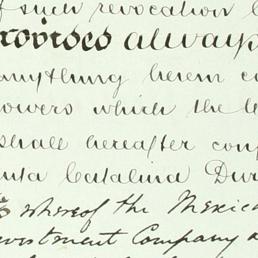 of such revocation
Provided always
anything herein co
powers which the le
shall hereafter con
anta Catalina Dur
whereof the Mexica
vestment Company